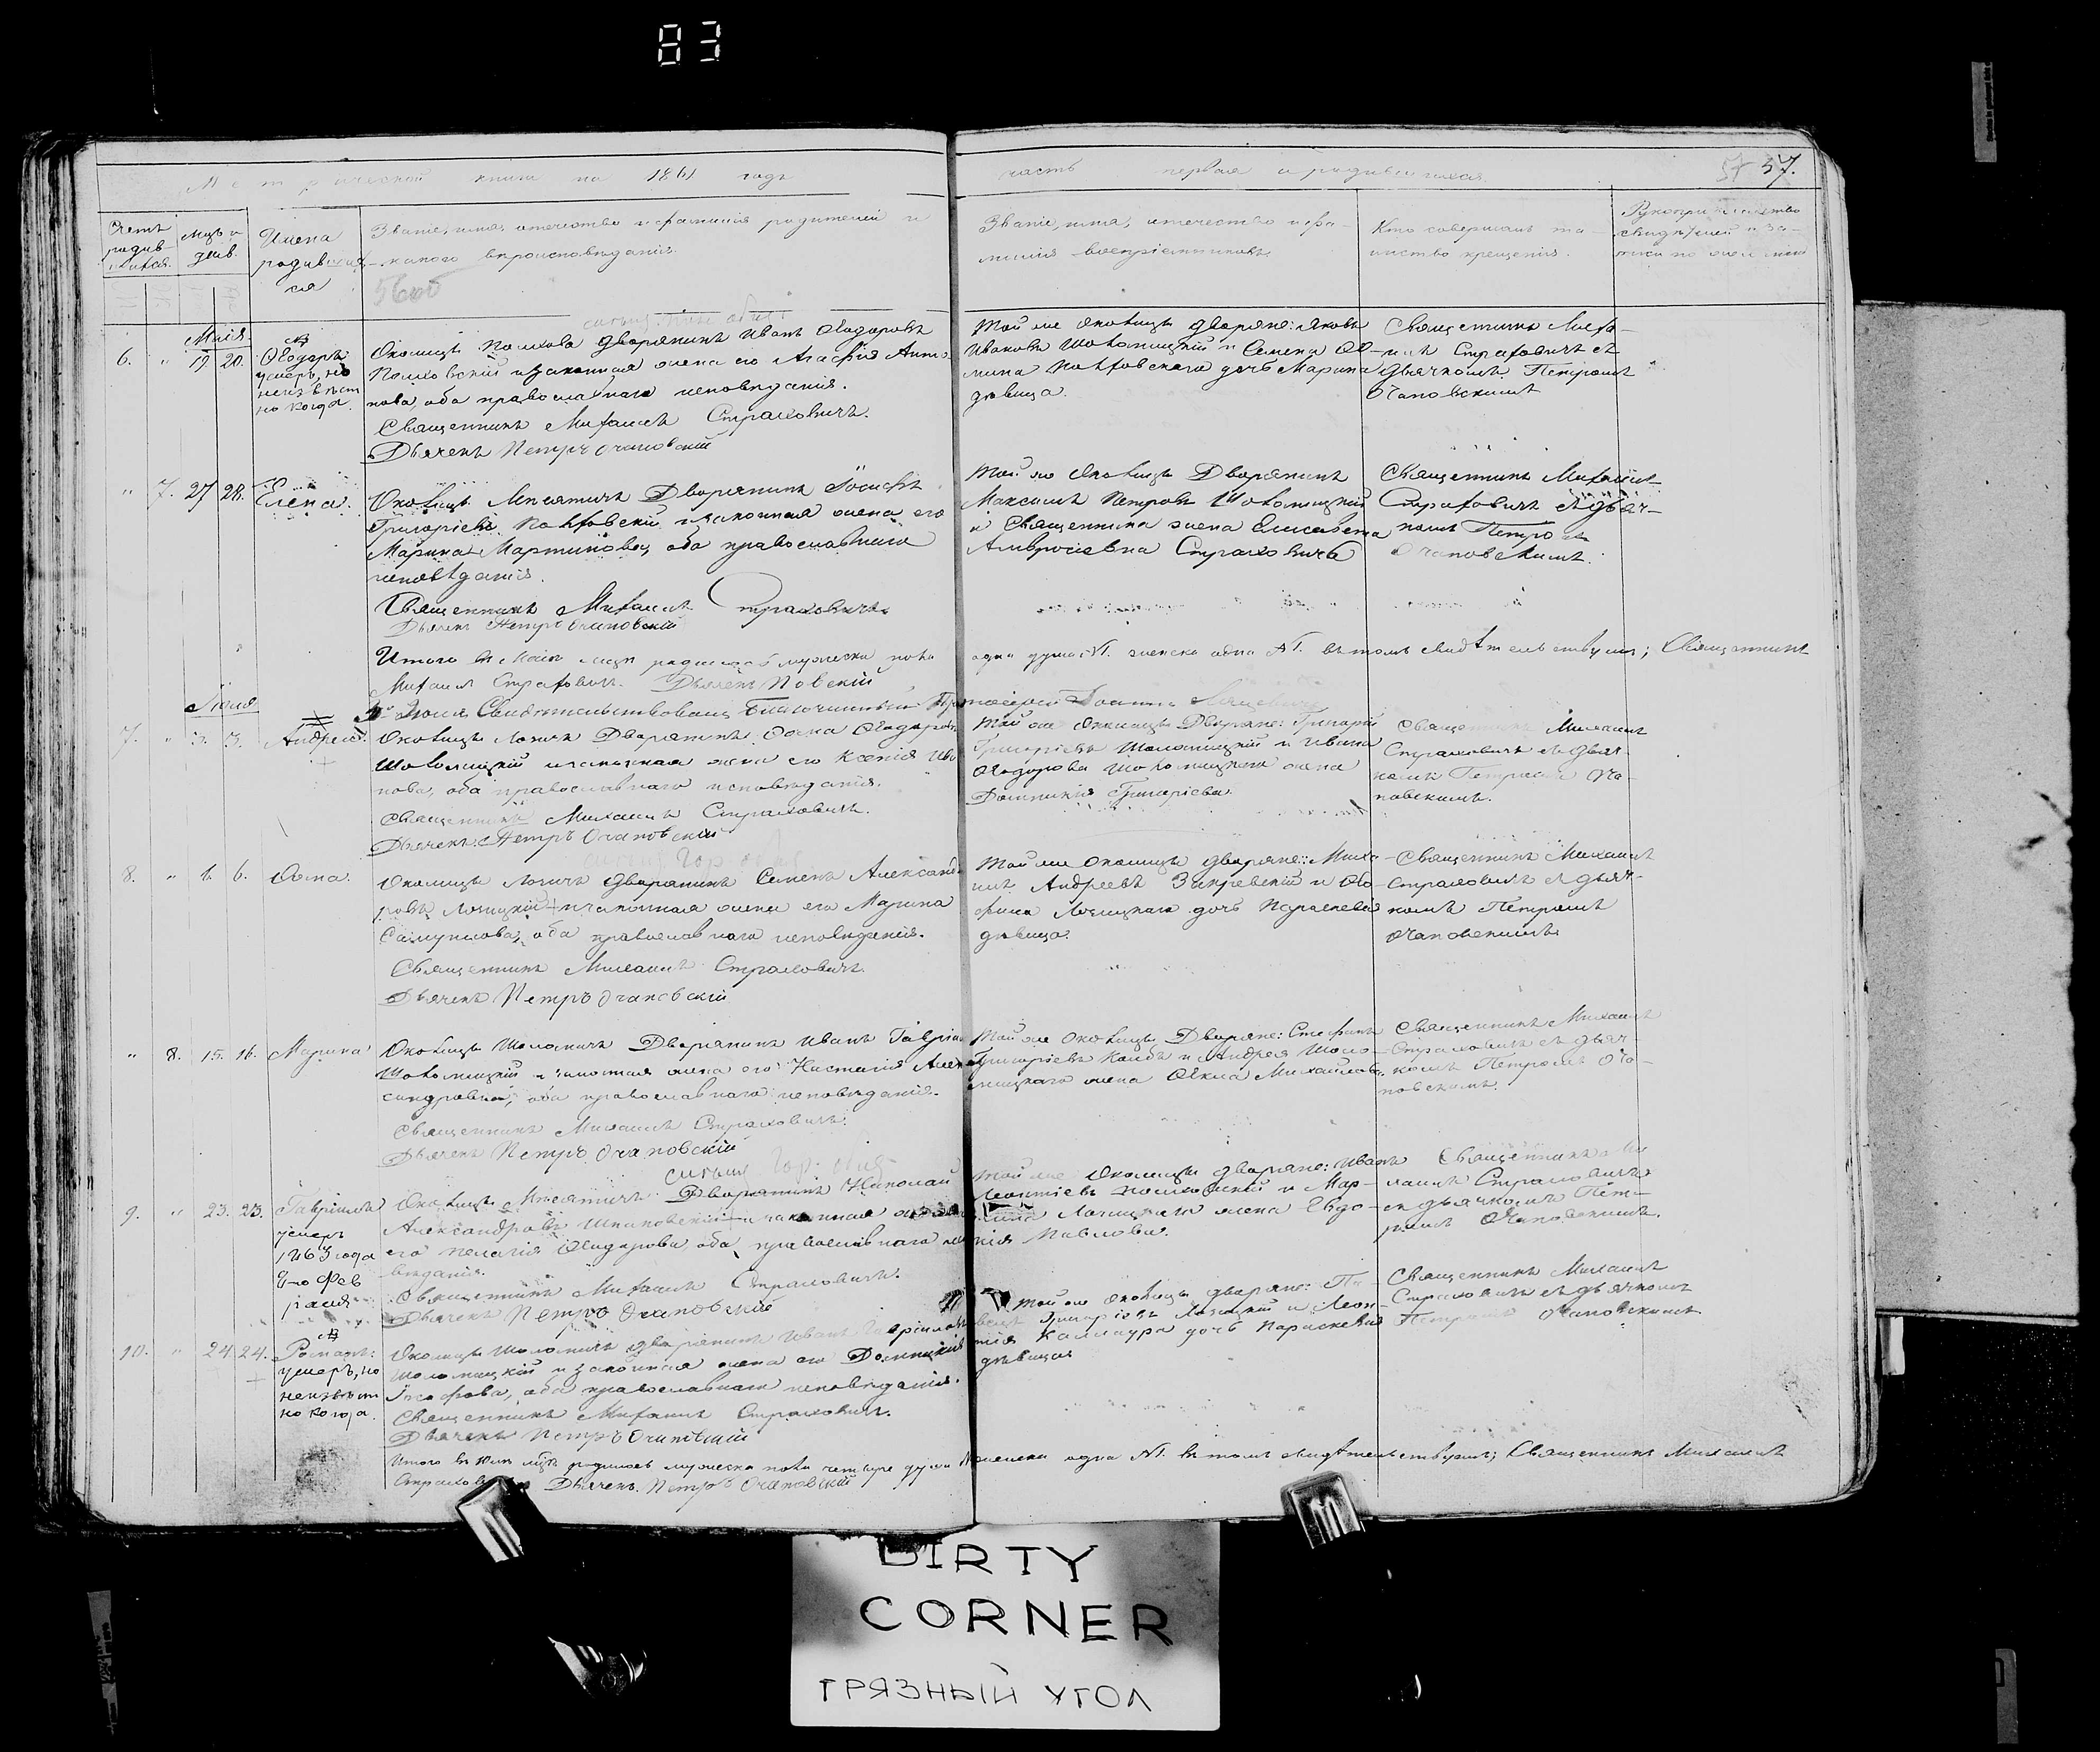 83
Метрической книги на 1861 годъ
часть первая о родившихся.
57 57.
Счетъ родив-
шихся.
Мѣс. и
днв.
Имена
родивших-
ся
Званіе, имя, отечество и фамилія родителей и
какого вѣроисповѣданія.
Званіе, имя, отечество и фа-
милія воспріемниковъ
Кто совершалъ та-
инство крещенія.
Рукоприкладство
свидѣтелей о за-
писи по желанію
560об
Маія
6. " 19. 20.
Ѳеодоръ
умеръ, но
неизвѣст
но когда.
Околицы Полхова дворянинъ Иванъ Ѳеодоровъ
Полховскій и законная жена его Агафія Анто-
нова, оба православнаго исповѣданія.
Священникъ Михаилъ Страховичъ.
Дьячекъ Петръ Очаповскій
Той же околицы дворяне: Яковъ
Ивановъ Шоломицкій и Семена
Полховскаго дочь Марина
дѣвица.
Священникъ Миха-
илъ Страховичъ съ
дьячкомъ Петромъ
Очаповскимъ
" 7. 27 28.
Елена.
Околицы Мнсятичъ Дворянинъ Іосифъ
Григоріевъ Полховскій и законная жена его
Марина Мартинова, оба православнаго
исповѣданія.
Священникъ Михаилъ Страховичъ
Дьячекъ Петръ Очаповскій
Той же Околицы Дворянинъ
Максимъ Петровъ Шоломицкій
и Священника жена Елисавета
Амвросіевна Страховичъ
Священникъ Михаилъ
Страховичъ съ дьяч-
комъ Петромъ
Очаповскимъ.
Итого въ Маіи мцѣ родилось мужеска пола
одна душа №1. женска одна №1. въ томъ свидѣтельствуемъ; Священникъ
Михаилъ Страховичъ. Дьячекъ
Іюня
Свидѣтельствовалъ Благочинный Протоіерей Іоаннъ
7. " 3. 3.
Андрей.
Околицы Логичъ Дворянинъ Ѳома Ѳеодоровъ
Шоломицкій и законная жена его Ксенія Ива
нова, оба православнаго исповѣданія.
Священникъ Михаилъ Страховичъ.
Дьячекъ Петръ Очаповскій
Той же околицы Дворяне: Григорій
Григоріевъ Шоломицкій и Ивана
Ѳеодорова Шоломицкаго жена
Домникія Григоріева.
Священникъ Михаилъ
Страховичъ съ дьяч-
комъ Петромъ Оча-
повскимъ.
8. " 6.
Ѳома.
Околицы Логичъ дворянинъ Семенъ Александ-
ровъ Лозицкій и законная жена его Марина
Самуилова, оба православнаго исповѣданія.
Священникъ Михаилъ Страховичъ.
Дьячекъ Петръ Очаповскій
Той же околицы дворяне: Миха-
илъ Андреевъ Закревскій и
Лозицкаго дочь Параскевія
дѣвица.
Священникъ Михаилъ
Страховичъ съ дьяч-
комъ Петромъ
Очаповскимъ
" 8. 15. 16.
Марина
Околицы Шоломичъ Дворянинъ Иванъ Гавріи
Шоломицкій и законная жена его Настасія Алек
сандровна, оба православнаго исповѣданія.
Священникъ Михаилъ Страховичъ.
Дьячекъ Петръ Очаповскій
Той же Околицы Дворяне: Стефанъ
Григоріевъ и Андрея Шоло-
мицкаго жена Ѳекла Михайлова.
Священникъ Михаилъ
Страховичъ съ дьяч-
комъ Петромъ Оча-
повскимъ.
9. " 23. 23.
Гавріилъ
умеръ
1863 года
Фев
раля
Околицы Мнсятичъ Дворянинъ Николай
Александровъ и законная жена
его Пелагія Ѳеодорова, оба православнаго испо
вѣданія.
Священникъ Михаилъ Страховичъ.
Дьячекъ Петръ Очаповскій
Той же Околицы дворяне: Иванъ
Леонтіевъ Полховскій и Мар-
Лозицкаго жена Евдо-
кія Павлова.
Священникъ Ми-
хаилъ Страховичъ
съ дьячкомъ Пет-
ромъ Очаповскимъ.
10. " 24. 24.
Романъ:
умеръ, но
неизвѣст
но когда.
Околицы Шоломичъ дворянинъ Иванъ Гавріиловъ
Шоломицкій и законная жена его Домникія
Іосифова, оба православнаго исповѣданія.
Священникъ Михаилъ Страховичъ.
Дьячекъ Петръ Очаповскій
Той же околицы дворяне: Па-
велъ Григоріевъ Лозицкій и Леон-
тія Каллаура дочь Параскевія
дѣвица
Священникъ Михаилъ
Страховичъ съ дьячкомъ
Петромъ Очаповскимъ
Итого въ Іюнѣ мцѣ родилось мужеска пола четыре души
женска одна №1. въ томъ свидѣтельствуемъ; Священникъ Михаилъ
Страховичъ Дьячекъ Петръ Очаповскій
DIRTY
CORNER
ГРЯЗНЫЙ УГОЛ